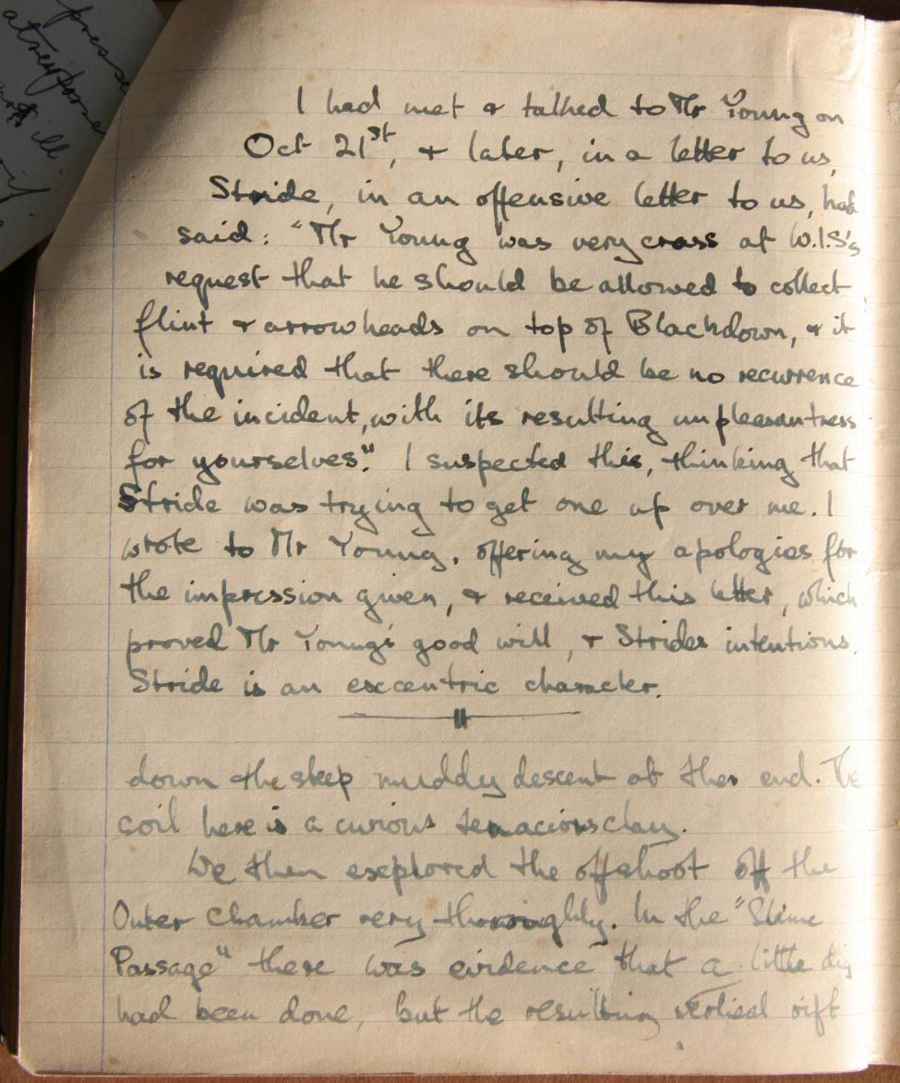 I had met & talked to Mr Young on
Oct 21st, & later, in a letter to us,
Stride, in an offensive letter to us, had
said: "Mr Young was very cross at W.I.S's
request that he should be allowed to collect
flint & arrowheads on top of Blackdown, & it
is required that there should be no recurrence
of the incident, with its resulting unpleasantness
for yourselves." I suspected this, thinking that
Stride was trying to get one up over me. I
wrote to Mr Young, offering my apologies for
the impression given, & received this letter, which
proved Mr Young's good will, & Strides intentions.
Stride is an exccentric character.
down the steep muddy descent at the end. The
soil here is a curious tenacious clay.
We then explored the offshoot off the
Outer Chamber very thoroughly. In the "Slime
Passage" there was evidence that a little dig
had been done, but the resulting vertical rift
press
ill